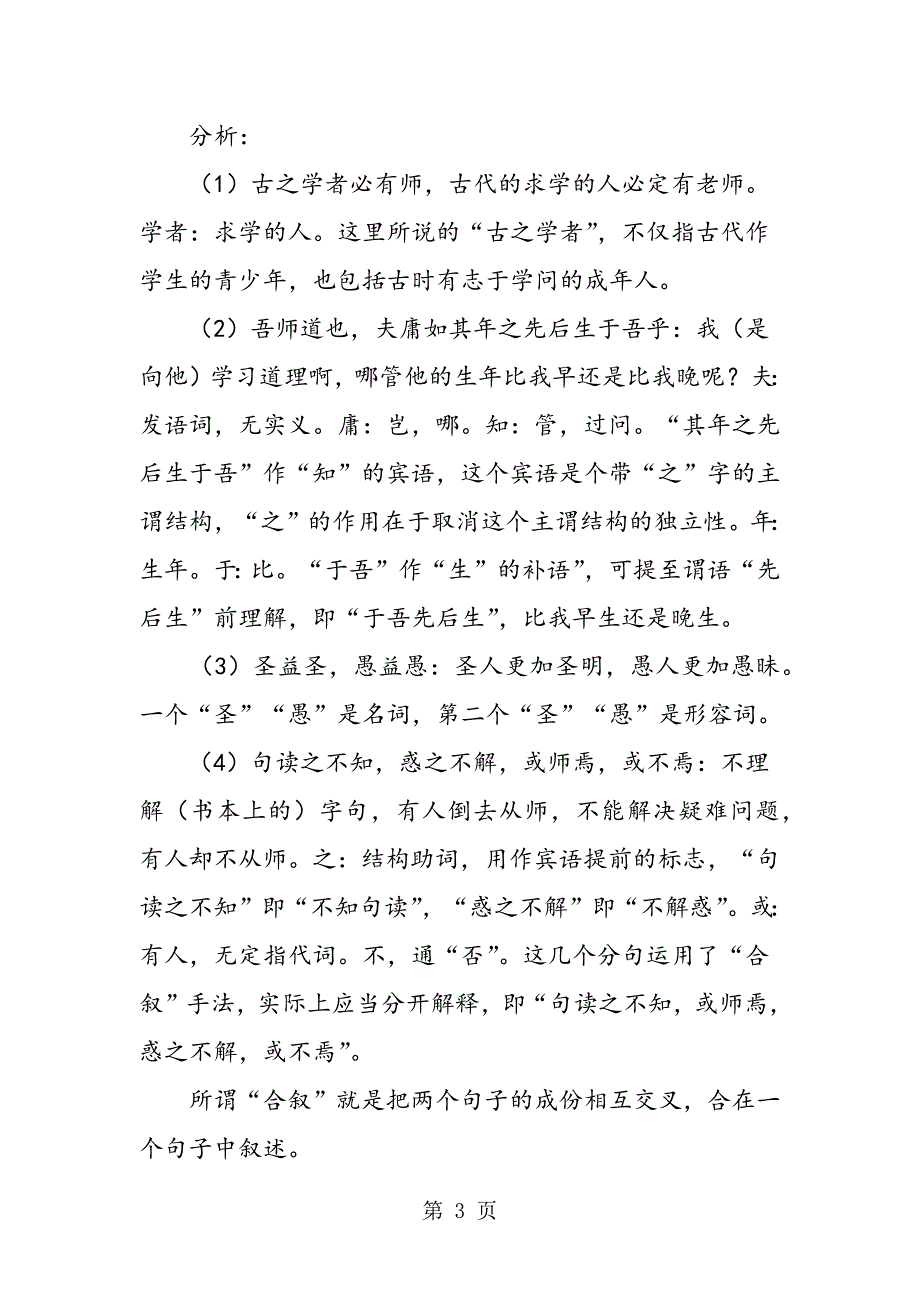 分析：
（1）古之学者必有师，古代的求学的人必定有老师。
学者：求学的人。这里所说的“古之学者”，不仅指古代作
学生的青少年，也包括古时有志于学问的成年人。
（2）吾师道也，夫庸如其年之先后生于吾乎：我（是
向他）学习道理啊，哪管他的生年比我早还是比我晚呢？夫：
发语词，无实义。庸：岂，哪。知：管，过问。“其年之先
后生于吾”作“知”的宾语，这个宾语是个带“之”字的主
谓结构，“之”的作用在于取消这个主谓结构的独立性。年：
生年。于：比。“于吾”作“生”的补语”，可提至谓语“先
后生”前理解，即“于吾先后生”，比我早生还是晚生。
（3）圣益圣，愚益愚：圣人更加圣明，愚人更加愚昧。
一个“圣”“愚”是名词，第二个“圣”“愚”是形容词。
（4）句读之不知，惑之不解，或师焉，或不焉：不理
解（书本上的）字句，有人倒去从师，不能解决疑难问题，
有人却不从师。之：结构助词，用作宾语提前的标志，“句
读之不知”即“不知句读”，“惑之不解”即“不解惑”。或：
有人，无定指代词。不，通“否”。这几个分句运用了“合
叙”手法，实际上应当分开解释，即“句读之不知，或师焉，
惑之不解，或不焉”。
所谓“合叙”就是把两个句子的成份相互交叉，合在一
个句子中叙述。
第 3 页